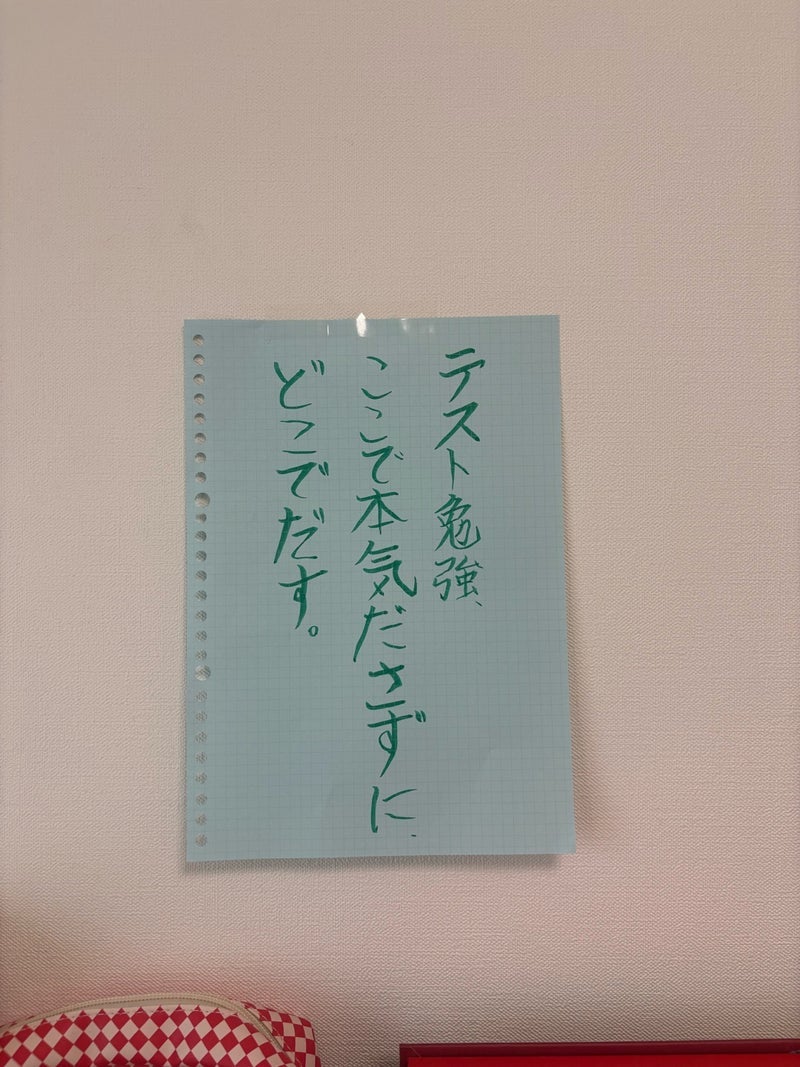 テスト勉強、
ここで本気ださずに、
どこでだす。